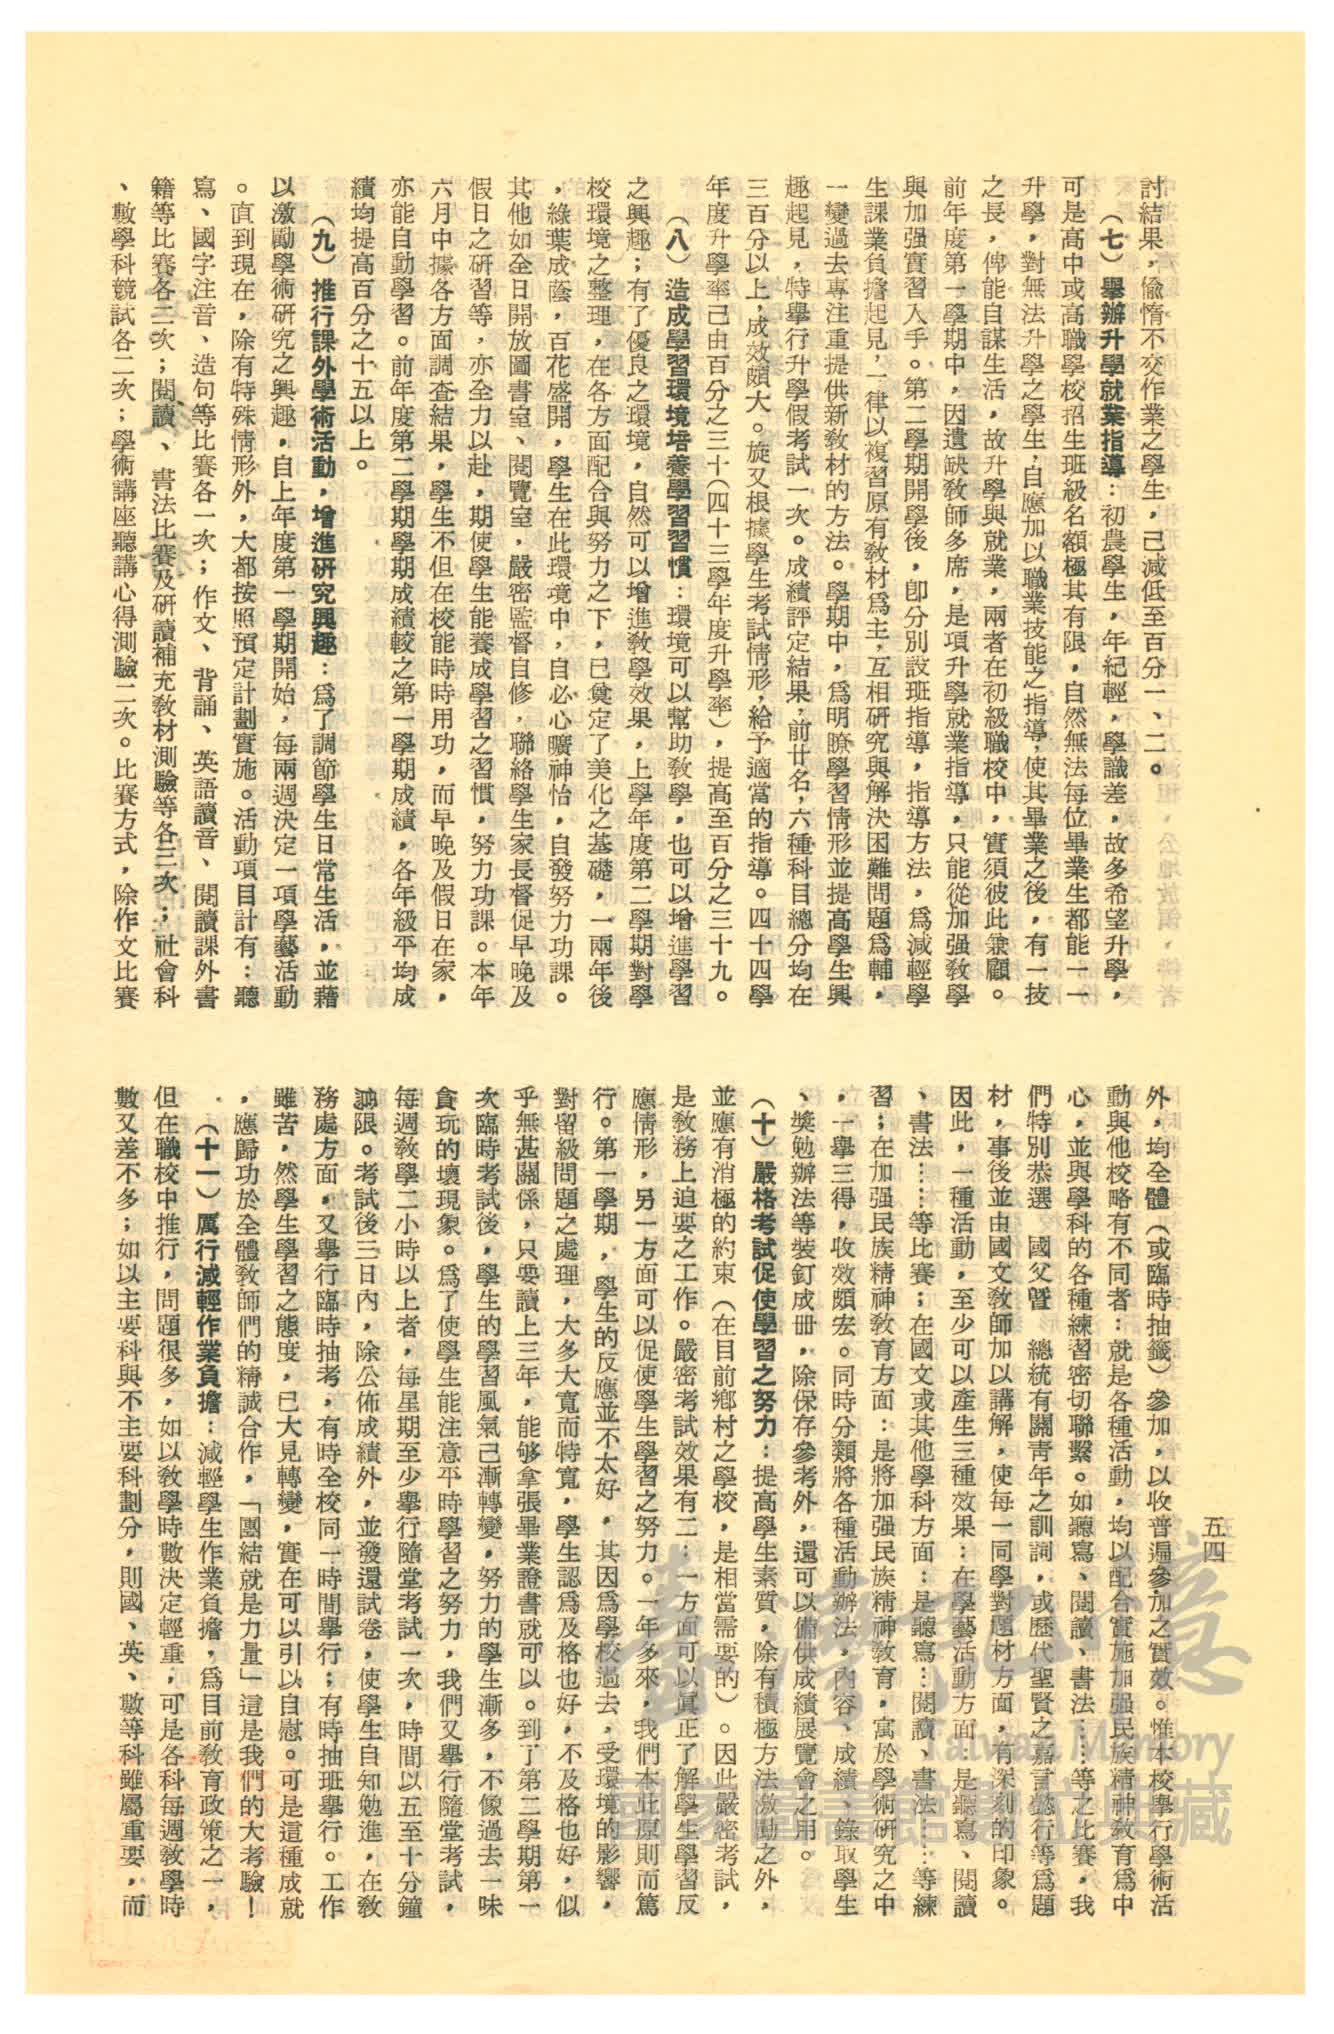 五四
討結果，偸惰不交作業之學生，已減低至百分一、二。
（七）舉辦升學就業指導：初農學生，年紀輕，學識差，故多希望升學，
可是高中或高職學校招生班級名額極其有限，自然無法每位畢業生都能一一
升學，對無法升學之學生，自應加以職業技能之指導，使其畢業之後，有一技
之長，俾能自謀生活，故升學與就業，兩者在初級職校中，實須彼此兼顧。
前年度第一學期中，因遺缺敎師多席，是項升學就業指導，只能從加强敎學
與加强實習入手。第二學期開學後，卽分別設班指導，指導方法，爲減輕學
生課業負擔起見，一律以複習原有敎材爲主，互相研究與解決困難問題爲輔，
一變過去專注重提供新敎材的方法。學期中，爲明瞭學習情形並提高學生興
趣起見，特舉行升學假考試一次。成績評定結果，前廿名，六種科目總分均在
三百分以上，成效頗大。旋又根據學生考試情形，給予適當的指導。四十四學
年度升學率已由百分之三十（四十三學年度升學率），提高至百分之三十九。
（八）造成學習環境培養學習習慣：環境可以幫助敎學，也可以增進學習
之興趣；有了優良之環境，自然可以增進敎學效果，上學年度第二學期對學
校環境之整理，在各方面配合與努力之下，已奠定了美化之基礎，一兩年後
，綠葉成蔭，百花盛開，學生在此環境中，自必心曠神怡，自發努力功課。
其他如全日開放圖書室、閱覽室，嚴密監督自修，聯絡學生家長督促早晚及
假日之硏習等，亦全力以赴，期使學生能養成學習之習慣，努力功課。本年
六月中據各方面調查結果，學生不但在校能時時用功，而早晚及假日在家，
亦能自動學習。前年度第二學期學期成績較之第一學期成績，各年級平均成
績均提高百分之十五以上。
（九）推行課外學術活動，增進硏究興趣：爲了調節學生日常生活，並藉
以激勵學術硏究之興趣，自上年度第一學期開始，每兩週決定一項學藝活動
。直到現在，除有特殊情形外，大都按照預定計劃實施。活動項目計有：聽
寫、國字注音、造句等比賽各一次；作文、背誦、英語讀音、閱讀課外書
籍等比賽各二次；閱讀、書法比賽及硏讀補充敎材測驗等各三次；社會科
、數學科競試各二次；學術講座聽講心得測驗二次。比賽方式，除作文比賽
外，均全體（或臨時抽籤）參加，以收普遍參加之實效。惟本校舉行學術活
動與他校略有不同者：就是各種活動，均以配合實施加强民族精神敎育爲中
心，並與學科的各種練習密切聯繫。如聽寫、閱讀、書法……等之比賽，我
們特別恭選　國父曁　總統有關靑年之訓詞，或歷代聖賢之嘉言懿行等爲題
材，事後並由國文敎師加以講解，使每一同學對題材方面，有深刻的印象。
因此，一種活動，至少可以產生三種效果：在學藝活動方面：是聽寫、閱讀
、書法……等比賽；在國文或其他學科方面：是聽寫…閱讀、書法……等練
習；在加强民族精神敎育方面：是將加强民族精神敎育，寓於學術硏究之中
，一舉三得，收效頗宏。同時分類將各種活動辦法，內容、成績、錄取學生
、獎勉辦法等裝釘成冊，除保存參考外，還可以備供成績展覽會之用。
（十）嚴格考試促使學習之努力：提高學生素質，除有積極方法激勵之外，
並應有消極的約束（在目前鄉村之學校，是相當需要的）。因此嚴密考試，
是敎務上迫要之工作。嚴密考試效果有二：一方面可以眞正了解學生學習反
應情形，另一方面可以促使學生學習之努力。一年多來，我們本此原則而篤
行。第一學期，學生的反應並不太好，其因爲學校過去，受環境的影響，
對留級問題之處理，大多大寬而特寬，學生認爲及格也好，不及格也好，似
乎無甚關係，只要讀上三年，能够拿張畢業證書就可以。到了第二學期第一
次臨時考試後，學生的學習風氣已漸轉變，努力的學生漸多，不像過去一味
貪玩的壞現象。爲了使學生能注意平時學習之努力，我們又舉行隨堂考試，
每週敎學二小時以上者，每星期至少舉行隨堂考試一次，時間以五至十分鐘
爲限。考試後三日內，除公佈成績外，並發還試卷，使學生自知勉進，在敎
務處方面，又舉行臨時抽考，有時全校同一時間舉行；有時抽班舉行。工作
雖苦，然學生學習之態度，已大見轉變，實在可以引以自慰。可是這種成就
，應歸功於全體敎師們的精誠合作，「團結就是力量」這是我們的大考驗！
（十一）厲行減輕作業負擔：減輕學生作業負擔，爲目前敎育政策之一，
但在職校中推行，問題很多，如以敎學時數決定輕重，可是各科每週敎學時
數又差不多；如以主要科與不主要科劃分，則國、英、數等科雖屬重要，而
臺灣記憶
Taiwan Memory
國家圖書館數位典藏